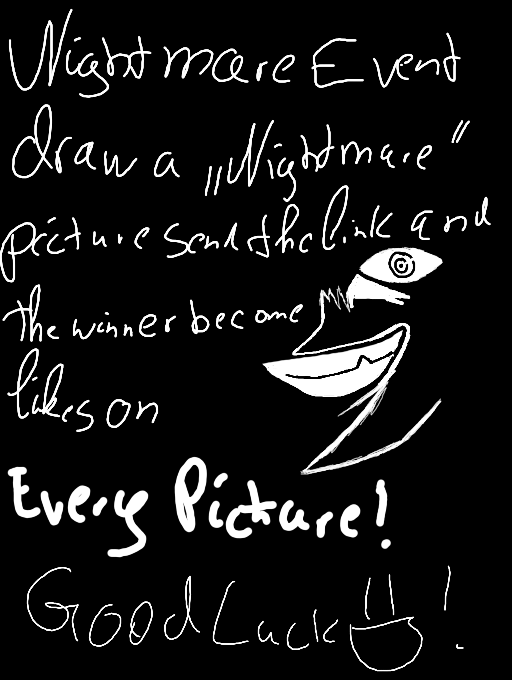 Nightmare Event
draw a „Nightmare“
picture send the link and
the winner become
likes on
Every Picture!
Good Luck !